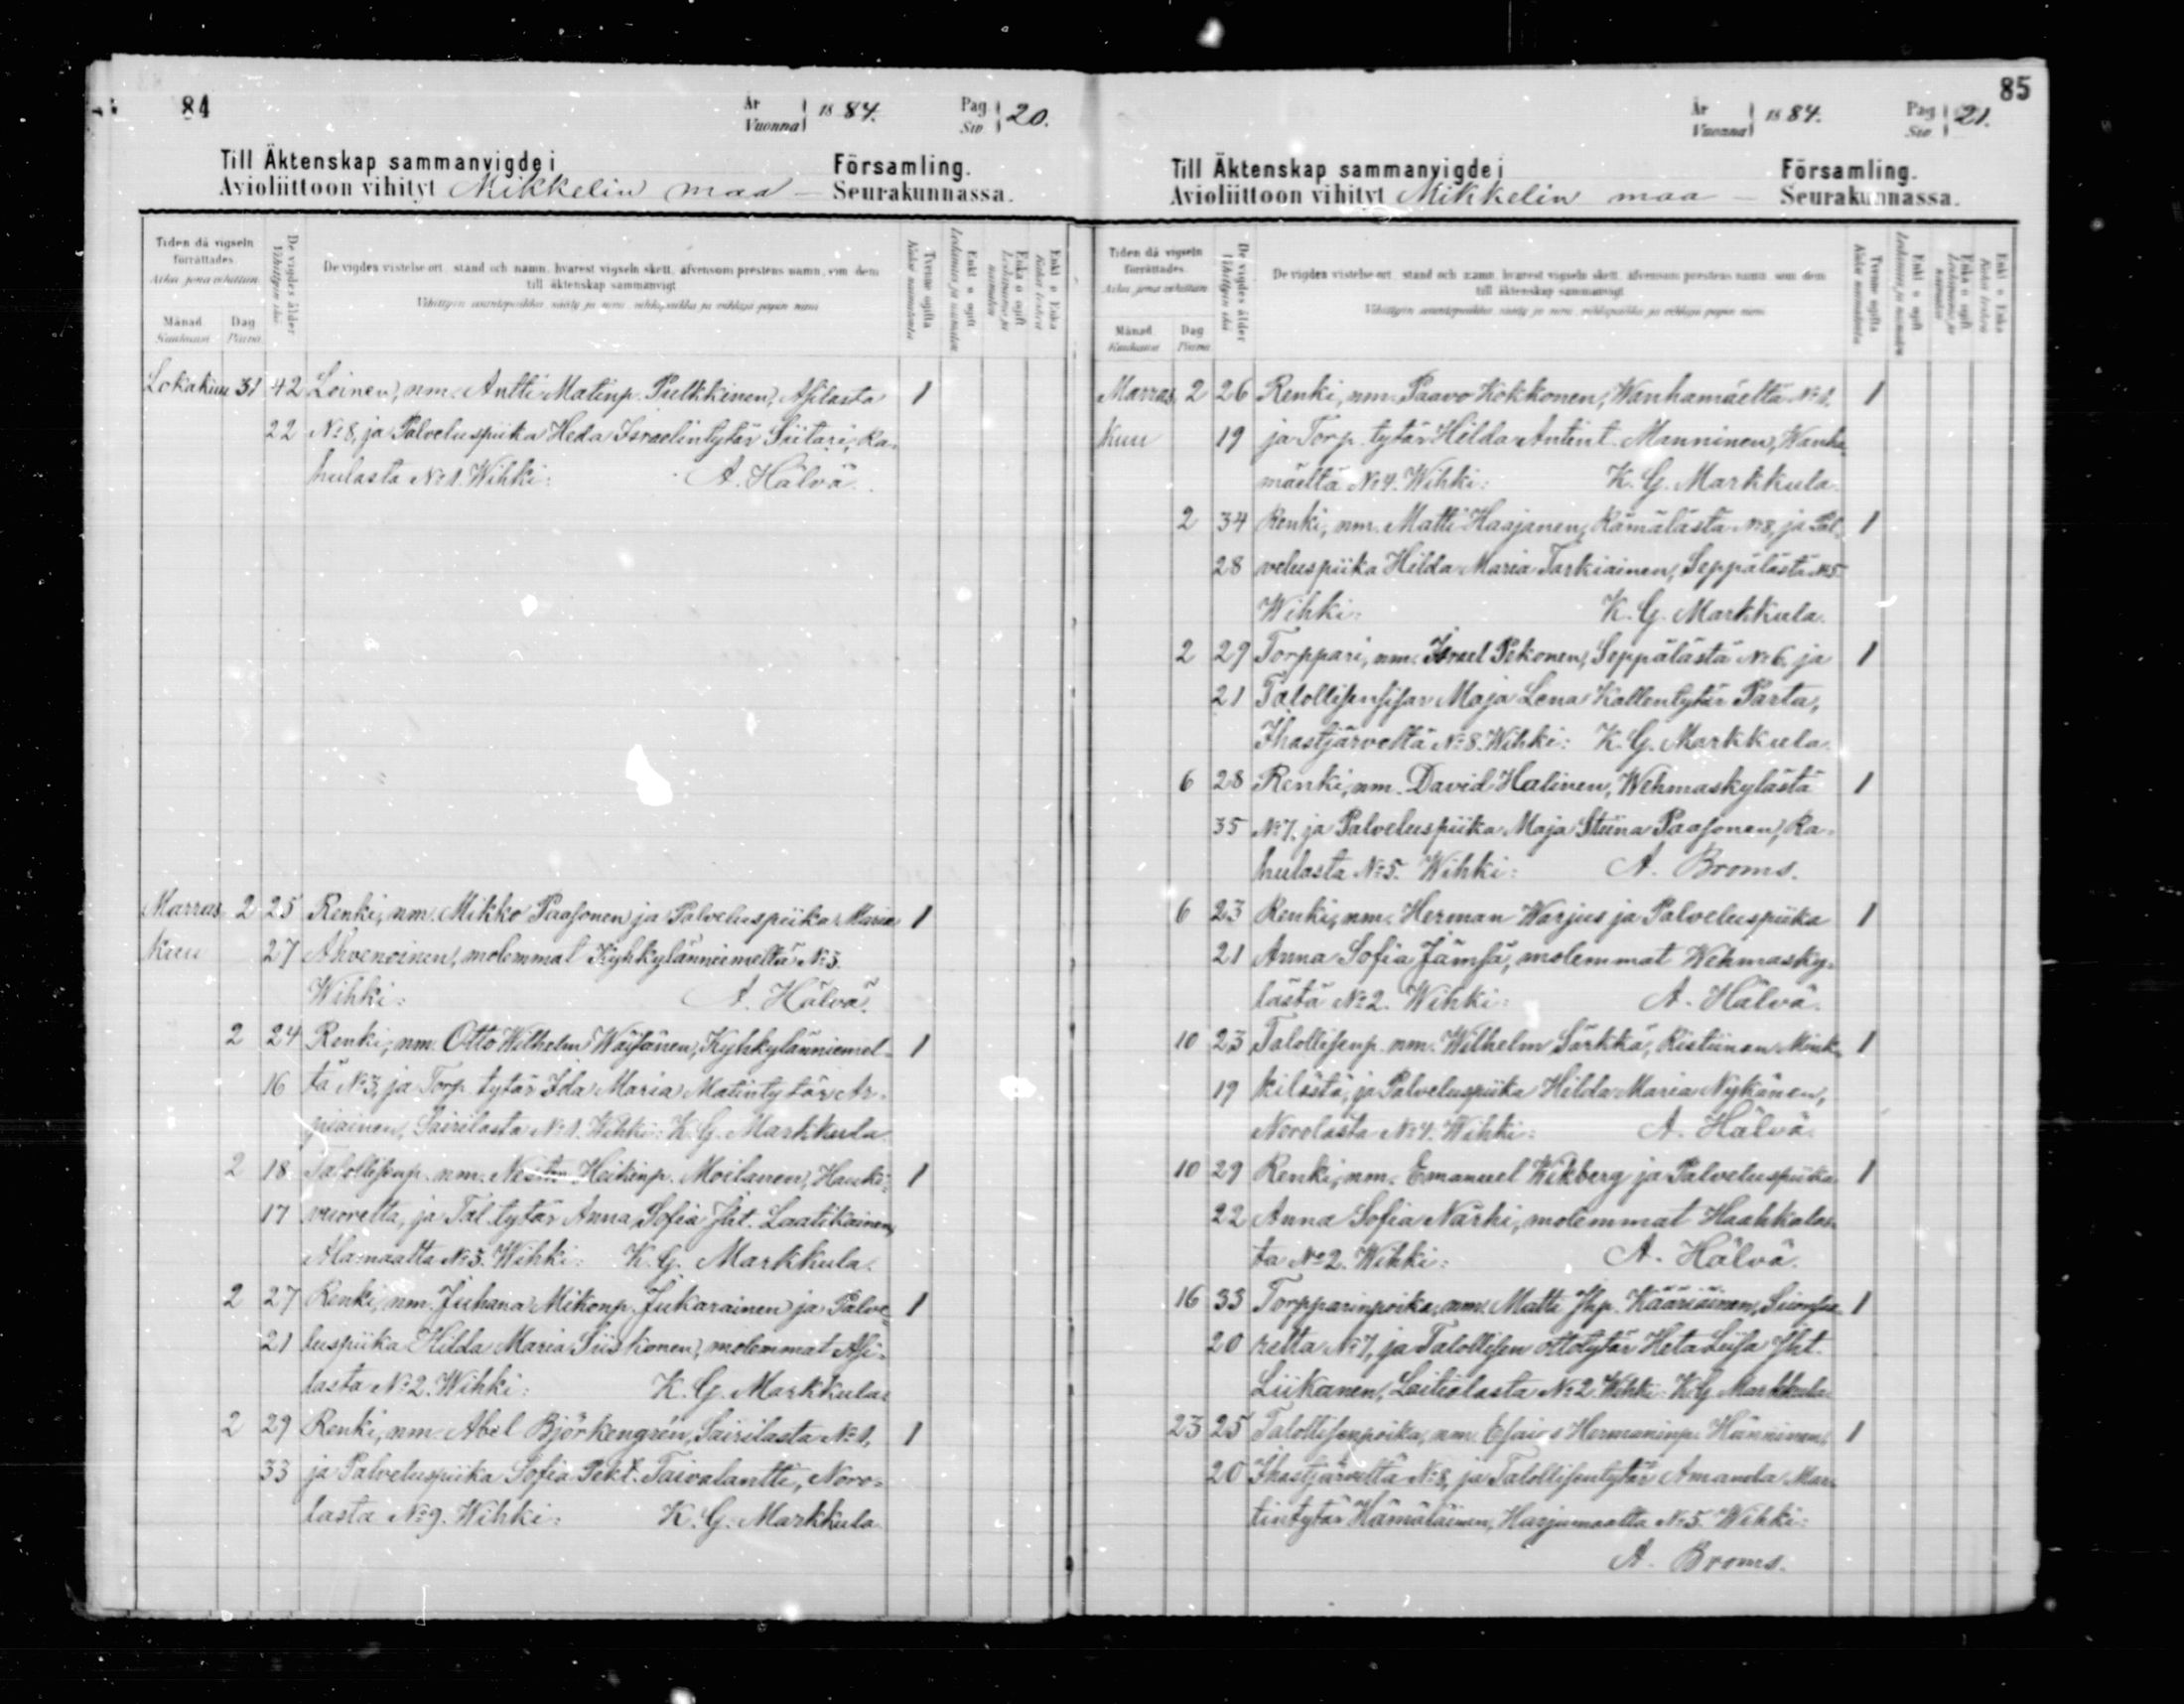 84
År
Vuonna
1884.
Pag.
Siv.
20.
Till Äktenskap sammanvigde i Församling.
Avioliittoon vihityt Mikkelin maa — Seurakunnassa.
Tiden då vigseln
förrättades.
Aika jona vihittiin
Månad
Kuukausi
Dag
Päivä
De vigdes ålder
De vigdes vistelseort, stånd och namn, hvarest vigseln skett, äfvensom prestens namn, som dem
till äktenskap sammanvigt
Tvenne ogifta
Enkl. o. ogift
Enka o. ogift
Enkl. o. Enka
Lokakuu 31 42 Loinen, nm. Antti Matinp. Pulkkinen, Asilasta 1
22 No 8, ja Palveluspiika Heda Israelintytär Siitari, Ra-
hulasta No 1. Wihki: A. Hälvä.
Marras 2 25 Renki, nm. Mikko Paasonen ja Palveluspiika Maria 1
Kuu 27 Ahvenoinen, molemmat Kyhkylänniemeltä No 3.
Wihki: A. Hälvä.
2 24 Renki, nm. Otto Wilhelm Wäisänen, Kyhkylänniemel- 1
16 tä No 3, ja Torp. tytär Ida Maria Matintytär Ar-
piainen, Sairilasta No 1. Wihki: K. G. Markkula.
2 18 Talollisenp. nm. Nestor Heikinp. Moilanen, Hauki- 1
17 vuorelta, ja Tal. tytär Anna Sofia Jht. Laatikainen,
Alamaalta No 3. Wihki: K. G. Markkula.
2 27 Renki, nm. Juhana Mikonp. Jukarainen ja Palve- 1
21 luspiika Hilda Maria Siiskonen, molemmat Asi-
lasta No 2. Wihki: K. G. Markkula.
2 29 Renki, nm. Abel Björkengrén, Sairilasta No 1, 1
33 ja Palveluspiika Sofia Pekt. Taivalantti, Noro-
lasta No 9. Wihki: K. G. Markkula.
85
År
Vuonna
1884.
Pag.
Siv.
21.
Till Äktenskap sammanvigde i Församling.
Avioliittoon vihityt Mikkelin maa — Seurakunnassa.
Tiden då vigseln
förrättades.
Aika jona vihittiin
Månad
Kuukausi
Dag
Päivä
De vigdes ålder
De vigdes vistelseort, stånd och namn, hvarest vigseln skett, äfvensom prestens namn, som dem
till äktenskap sammanvigt
Tvenne ogifta
Enkl. o. ogift
Enka o. ogift
Enkl. o. Enka
Marras 2 26 Renki, nm. Paavo Kokkonen, Wanhamäeltä No 1, 1
Kuu 19 ja Torp. tytär Hilda Antint. Manninen, Wanha-
mäeltä No 4. Wihki: K. G. Markkula.
2 34 Renki, nm. Matti Haajanen, Rämälästä No 8, ja Pal- 1
28 veluspiika Hilda Maria Tarkiainen, Seppälästä No 5.
Wihki: K. G. Markkula.
2 29 Torppari, nm. Israel Pekonen, Seppälästä No 6, ja 1
21 Talollisensisar Maja Lena Kallentytär Parta,
Ihastjärveltä No 8. Wihki: K. G. Markkula.
6 28 Renki, nm. David Halinen, Wehmaskylästä 1
35 No 7, ja Palveluspiika Maja Stiina Paasonen, Ra-
hulasta No 5. Wihki: A. Broms.
6 23 Renki, nm. Herman Warjus ja Palveluspiika 1
21 Anna Sofia Jämsä, molemmat Wehmasky-
lästä No 2. Wihki: A. Hälvä.
10 23 Talollisenp. nm. Wilhelm Särkkä, Ristiinan Mink- 1
19 kilästä, ja Palveluspiika Hilda Maria Nykänen,
Norolasta No 4. Wihki: A. Hälvä.
10 29 Renki, nm. Emanuel Wikberg ja Palveluspiika 1
22 Anna Sofia Närhi, molemmat Haahkalas-
ta No 2. Wihki: A. Hälvä.
16 33 Torpparinpoika, nm. Matti Jhp. Kääriäinen, 1
20 relta No 7, ja Talollisen ottotytär Heta Liisa Jht.
Liikanen, Laitialasta No 2. Wihki: K. G. Markkula.
23 25 Talollisenpoika, nm. Esaias Hermaninp. Hänninen, 1
20 Ihastjärveltä No 8, ja Talollisentytär Amanda Mar-
tintytär Hämäläinen, Harjumaalta No 5. Wihki:
A. Broms.